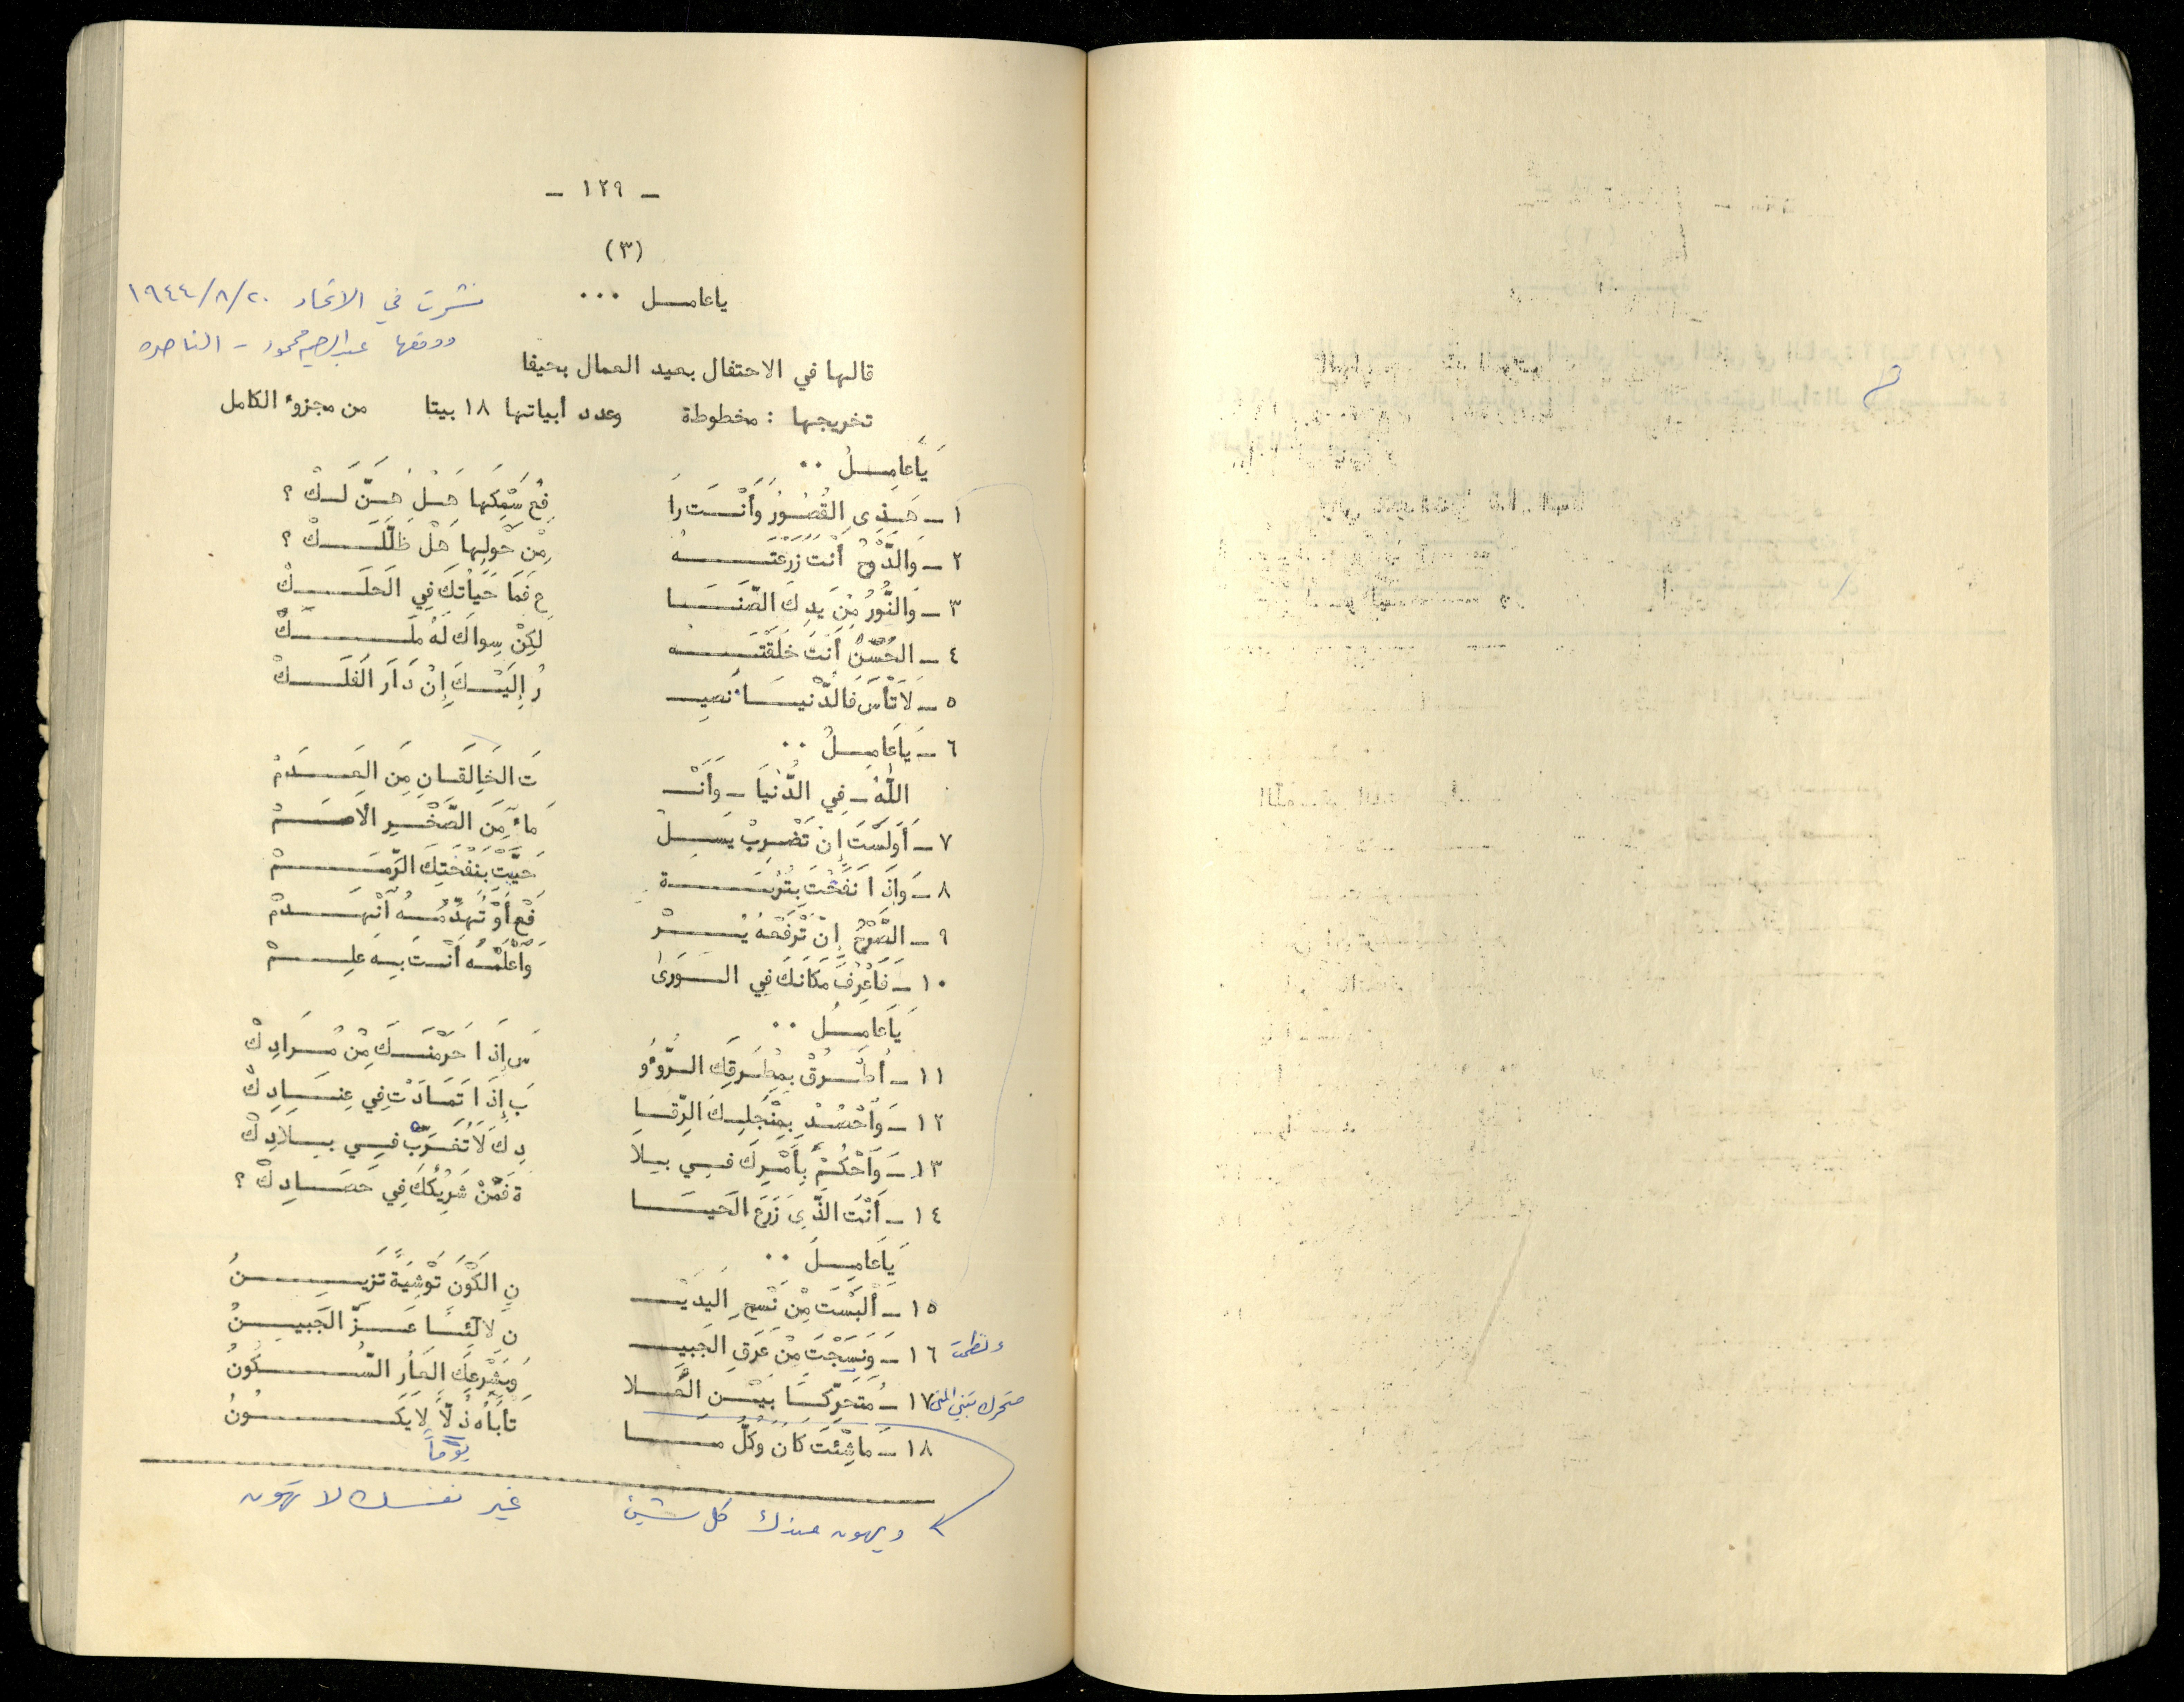 - ١٢٩ -
(٣)
ياعامل ...
نشرت في الاتحاد ٢٠/٨/١٩٤٤
ووقعها عبدالرحيم محمود - الناصره
قالها في الاحتفال بعيد العمال بحيفا
تخريجها : مخطوطة وعدد أبياتها ١٨ بيتا من مجزوء الكامل
يَاعامِلُ ..
١ - هَذِي القُصُورُ وَأَنْتَ را فِعُ سَمْكَها هَلْ هُنَّ لَكْ ؟
٢ - وَالدَّوْحُ أَنْتَ زَرَعْتَهُ مِنْ حَوْلِها هَلْ ظَلَّلَكْ ؟
٣ - وَالنُّورُ مِنْ يَدِكَ الصَّنَا عِ فَمَا حَيَاتُكَ فِي الحَلَكْ
٤ - الحُسْنُ أَنْتَ خَلَقْتَه لكِنْ سِواكَ لَهُ مَلَكْ
٥ - لاَتَأْسَ فَالدُّنْيَا تَصِيـ رُ إِلَيْكَ إِنْ دَارَ الفَلَكْ
٦ - يَاعَامِلُ ..
اللهُ - فِي الدُّنْيَا - وَأَنْـ تَ الخَالِقَانِ مِنَ العَدَمْ
٧ - أَوَلَسْتَ إِنْ تَضْرِبْ يَسِلْ مَاءٌ مِنَ الصَّخْرِ الأَصَمْ
٨ - وَإِذَا نَفَخْتَ بِتُرْبَةٍ حَيَّتْ بِنَفْخَتِكَ الرِّمَمْ
٩ - الصَّرْحُ إِنْ تَرْفَعْهُ يُرْ فَعْ أَوْ تُهَدِّمُهُ انْهَدَمْ
١٠ - فَاعْرِفْ مَكَانَكَ فِي الوَرَىٰ وَاعْلَمْهُ أَنْتَ بِهِ عَلِمْ
يَاعَامِلُ ..
١١ - أُطْرُقْ بِمِطْرَقِكَ الرُّؤُو سَ إِذَا حَرَمْنَكَ مِنْ مُرَادِكْ
١٢ - وَاحْصُدْ بِمِنْجَلِكَ الرِّقَا بَ إِذَا تَمَادَتْ فِي عِنَادِكْ
١٣ - وَاحْكُمْ بِأَمْرِكَ فِي بِلا دِكَ لاَتُغَرَّبْ فِي بِلاَدِكْ
١٤ - أَنْتَ الَّذِي زَرَعَ الحَيَا ةَ فَمَنْ شَرِيْكُكَ فِي حَصَادِكْ ؟
يَاعامِلُ ..
١٥ - أَلْبَسْتَ مِنْ نَسْجِ اليَدَيْـ نِ الكَوْنَ تَوْشِيَةً تَزِينُ
١٦ - وَنَسَجْتَ مِنْ عَرَقِ الجَبِيـ نِ لآلِئًا عَزَّ الجَبِينُ
ونظمت
١٧ - مُتَحَرِّكًا بَيْنَ الفَلا وَبِشَرْعِكَ العَارُ السُّكُونُ
متحرك تبني المنى
١٨ - مَاشِئْتَ كَانَ وَكُلُّ مَا تَأْبَاهُ ذُلاًّ لاَيَكُونُ
يوماً
ويهون عندك كل شيئ غير نفسك لا تهون